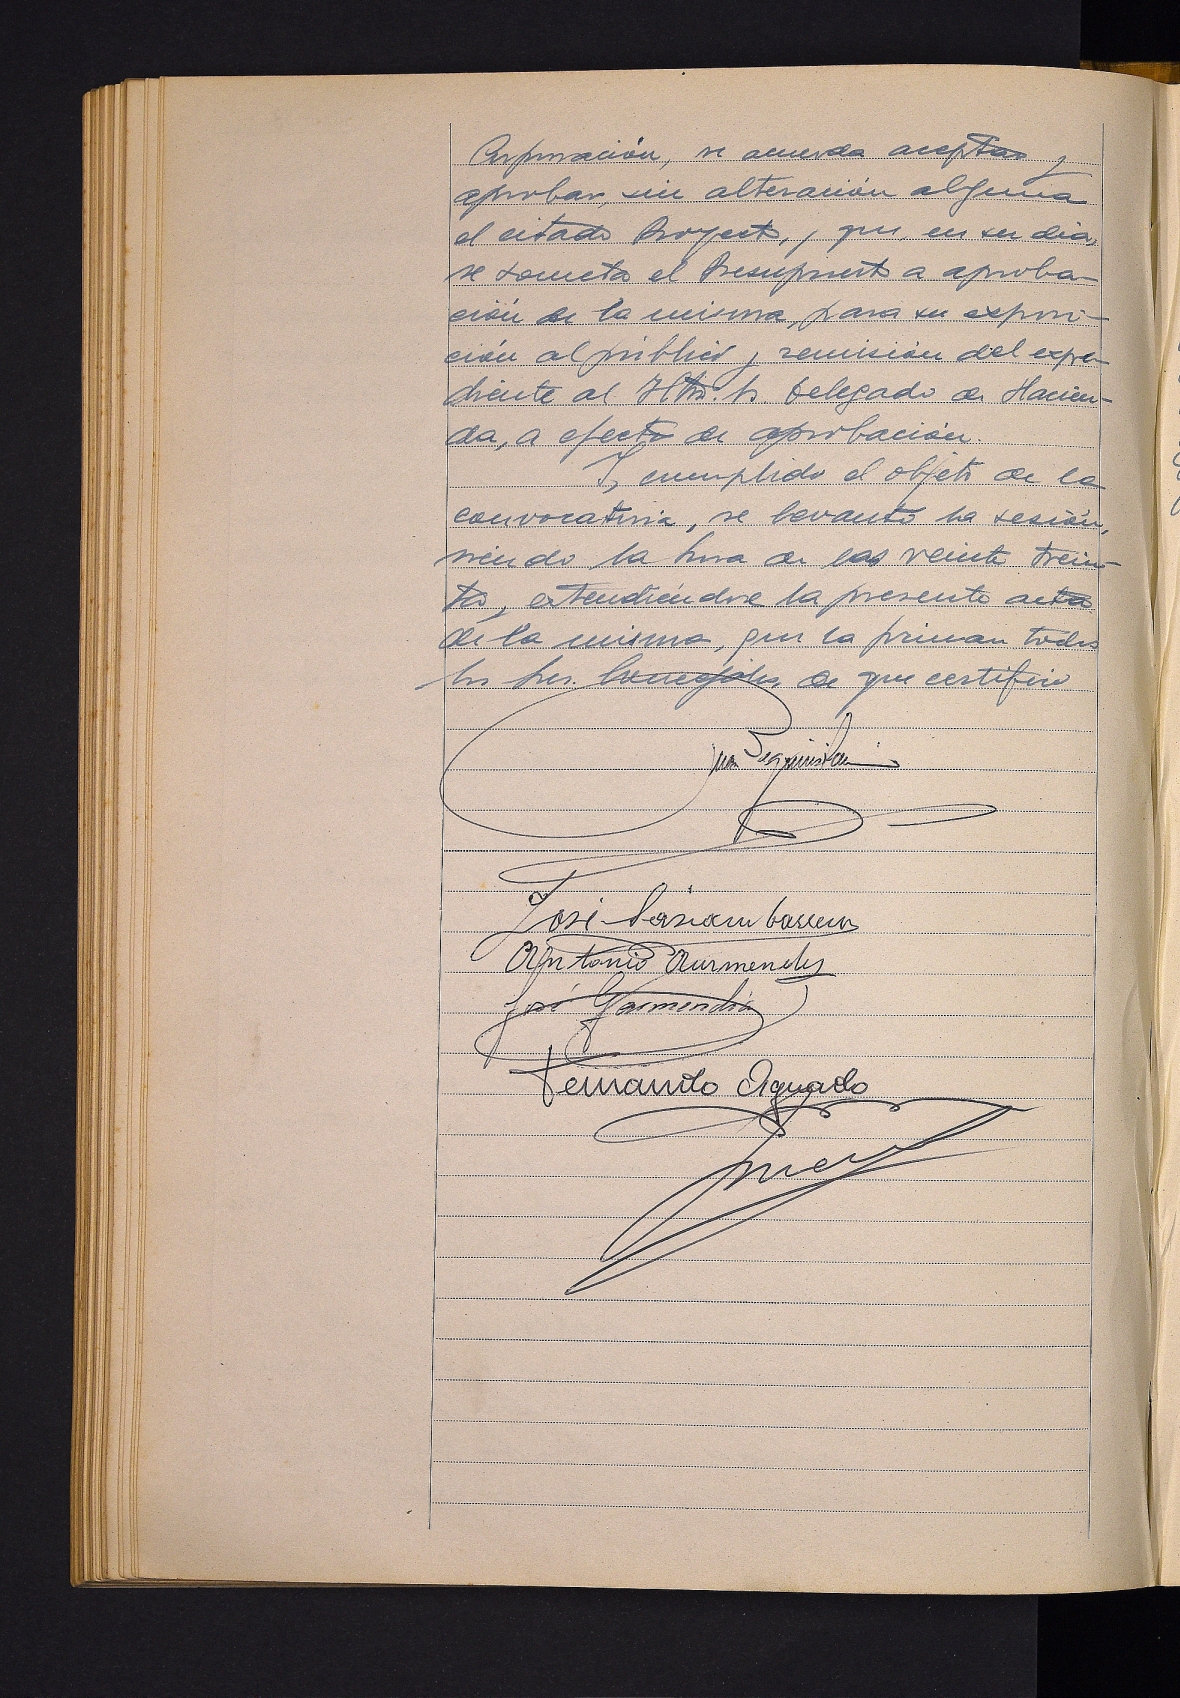 Corporación, se acuerda aceptar y
aprobar, sin alteración alguna
el citado Proyecto, y que, en su día,
se someta el Presupuesto a aproba-
ción de la misma, para su exposi-
ción al público y remisión del expe-
diente al Iltmo. Sr. Delegado de Hacien-
da, a efecto de aprobación.
Y, cumplido el objeto de la
convocatoria, se levantó la sesión,
siendo la hora de las veinte trein-
ta, extendiéndose la presente acta
de la misma, que la firman todos
los Sres. Concejales, de que certifico
Juan
José
Antonio Aurmendy
José Garmendia
Fernando Aguado